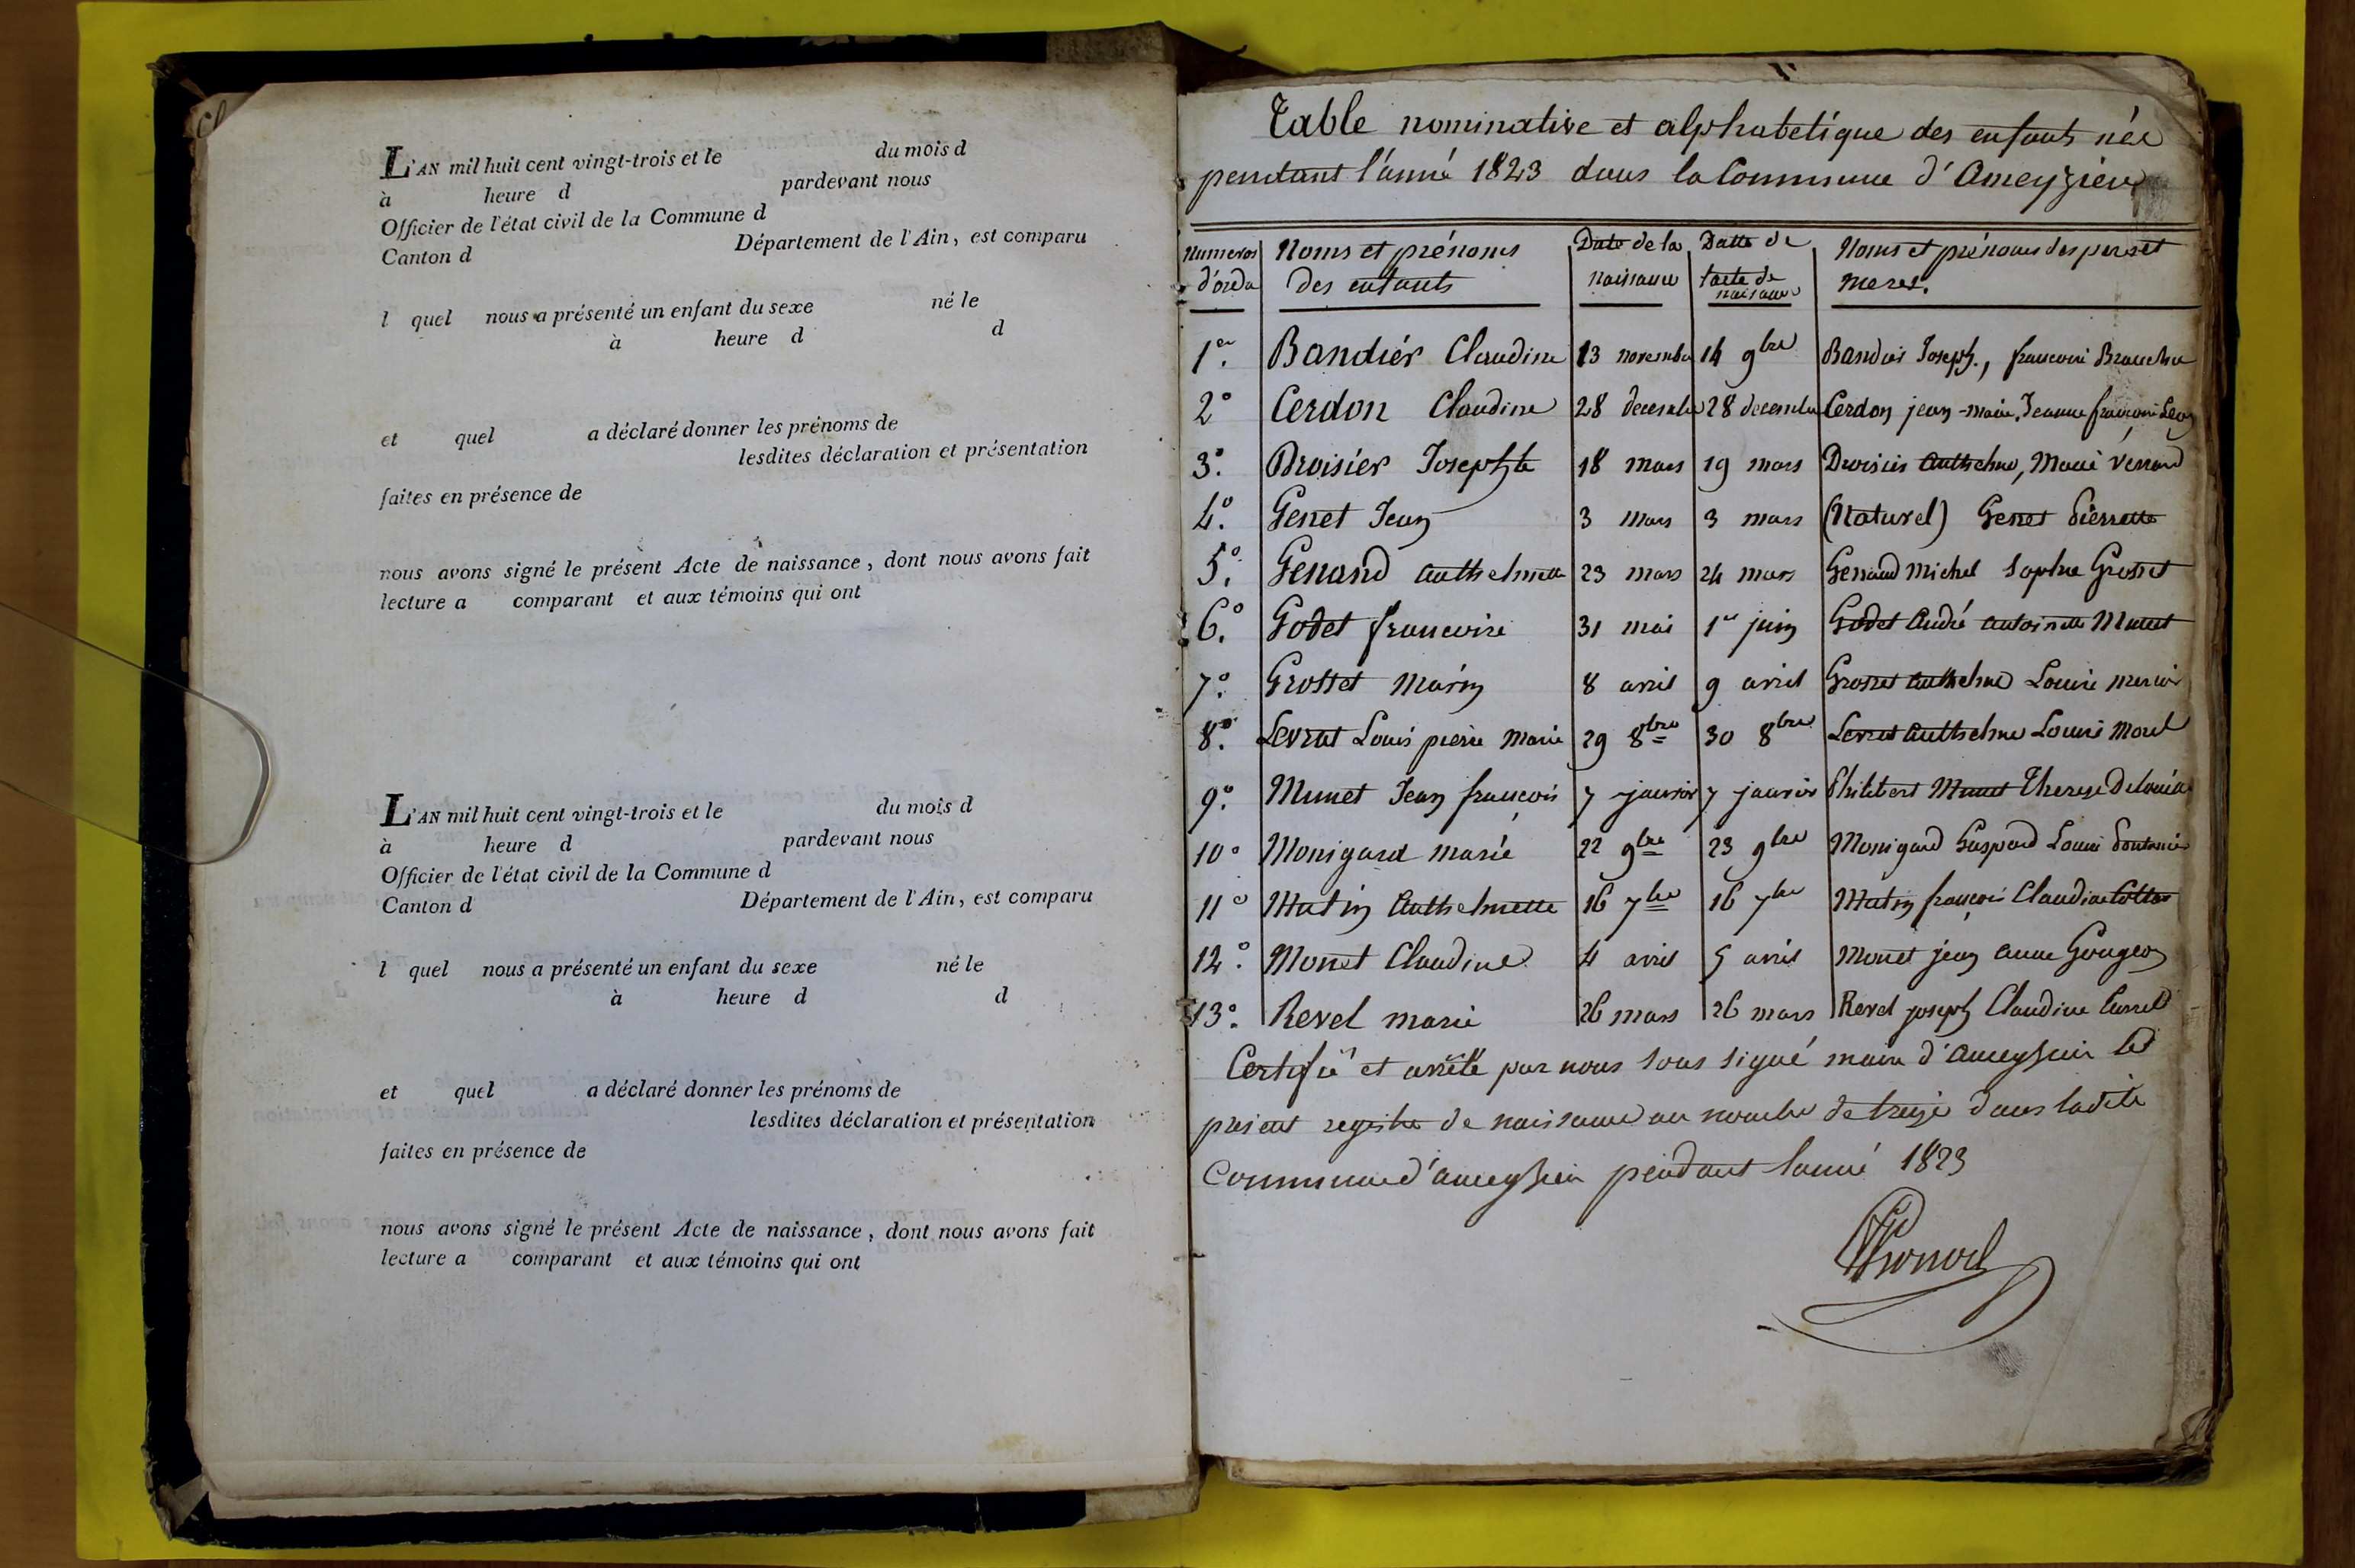 L'AN mil huit cent vingt-trois et le du mois d
à heure d pardevant nous
Officier de l'état civil de la Commune d
Canton d Département de l'Ain, est comparu
l quel nous a présenté un enfant du sexe né le
à heure d d
et quel a déclaré donner les prénoms de
lesdites déclaration et présentation
faites en présence de
nous avons signé le présent Acte de naissance, dont nous avons fait
lecture a comparant et aux témoins qui ont
L'AN mil huit cent vingt-trois et le du mois d
à heure d pardevant nous
Officier de l'état civil de la Commune d
Canton d Département de l'Ain, est comparu
l quel nous a présenté un enfant du sexe né le
à heure d d
et quel a déclaré donner les prénoms de
lesdites déclaration et présentation
faites en présence de
nous avons signé le présent Acte de naissance, dont nous avons fait
lecture a comparant et aux témoins qui ont
Table nominative et alphabetique des enfants née
pendant l'anné 1823 dans la Commune d'Ameyzieu
Numeros d'ordre Noms et prénoms des enfants Date de la naissance Datte de l'acte de naissance Noms et prénoms des peres et meres.
1er. Bandier Claudine 13 novembre 14 9bre Bandier Joseph., francoise
2° Cerdon Claudine 28 decembre 28 decembre Cerdon jean-marie, Jeanne francoise
3°. Droisier Josephte 18 mars 19 mars Droisier Anthelme, Marie
4°. Genet Jean 3 mars 3 mars (Naturel) Genet Pierrette
5°. Genand Anthelmette 23 mars 24 mars Genand Michel Sophie Grosset
6°. Godet francoise 31 mai 1er juin Godet André Antoinette Munet
7°. Grosset Marin 8 avril 9 avril Grosset Anthelme Louise mercier
8°. Levrat Louis pierre Marie 29 8bre 30 8bre Levrat Anthelme Louise Morel
9°. Munet Jean françois 7 janvier 7 janvier Philibert Munet Therese
10° Monigard Marie 22 9bre 23 9bre Monigard Gaspard Louise
11° Mutin Anthelmette 16 7bre 16 7bre Mutin françois Claudine
12°. Monet Claudine 4 avril 5 avril Monet jean Anne Gougeon
13°. Revel marie 26 mars 26 mars Revel joseph Claudine
Certifié et arrêté par nous sous signé maire d'ameysieu le
present registre de naissance au nombre de treize dans ladite
Commune d'ameysieu pendant lanné 1823